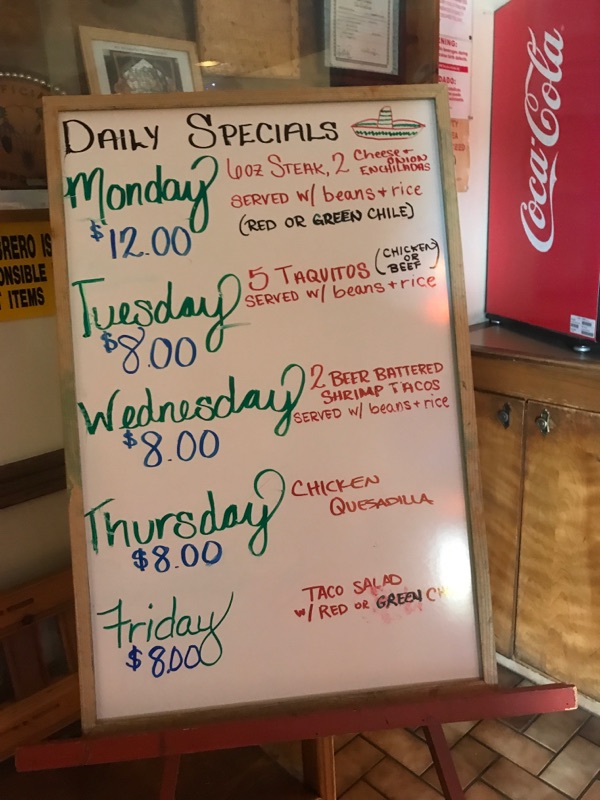 DAILY SPECIALS
Monday
$12.00
6oz STEAK, 2 Cheese + ONION ENCHILADAS
SERVED w/ beans + rice
(RED OR GREEN CHILE)
Tuesday
$8.00
5 TAQUITOS (CHICKEN OR BEEF)
SERVED w/ beans + rice
Wednesday
$8.00
2 BEER BATTERED
SHRIMP TACOS
SERVED w/ beans + rice
Thursday
$8.00
CHICKEN
QUESADILLA
Friday
$8.00
TACO SALAD
w/ RED OR GREEN CH
Coca-Cola
RERO IS
ONSIBLE
ITEMS